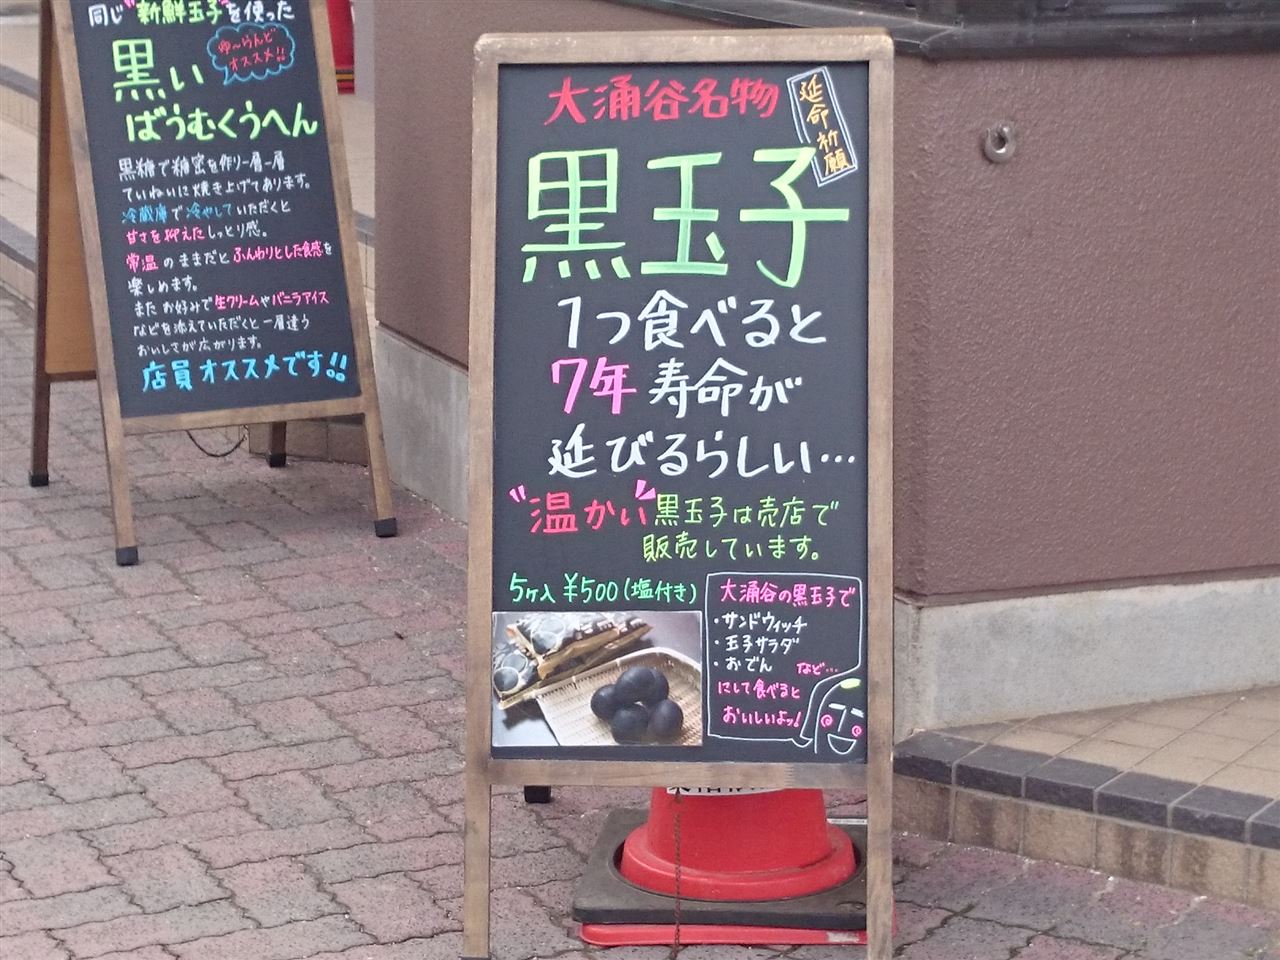 同じ"新鮮玉子"を使った
黒い
ばうむくうへん
ゆ〜らんど
オススメ!!
黒糖で糖密を作り一層一層
ていねいに焼き上げてあります。
冷蔵庫で冷やしていただくと
甘さを抑えたしっとり感。
常温のままだとふんわりとした食感を
楽しめます。
またお好みで生クリームやバニラアイス
などを添えていただくと一層違う
おいしさが広がります。
店員オススメです!!
大涌谷名物
延命祈願
黒玉子
1つ食べると
7年寿命が
延びるらしい…
"温かい"黒玉子は売店で
販売しています。
5ヶ入 ¥500(塩付き)
大涌谷の黒玉子で
・サンドウィッチ
・玉子サラダ
・おでん など…
にして食べると
おいしいよッ!